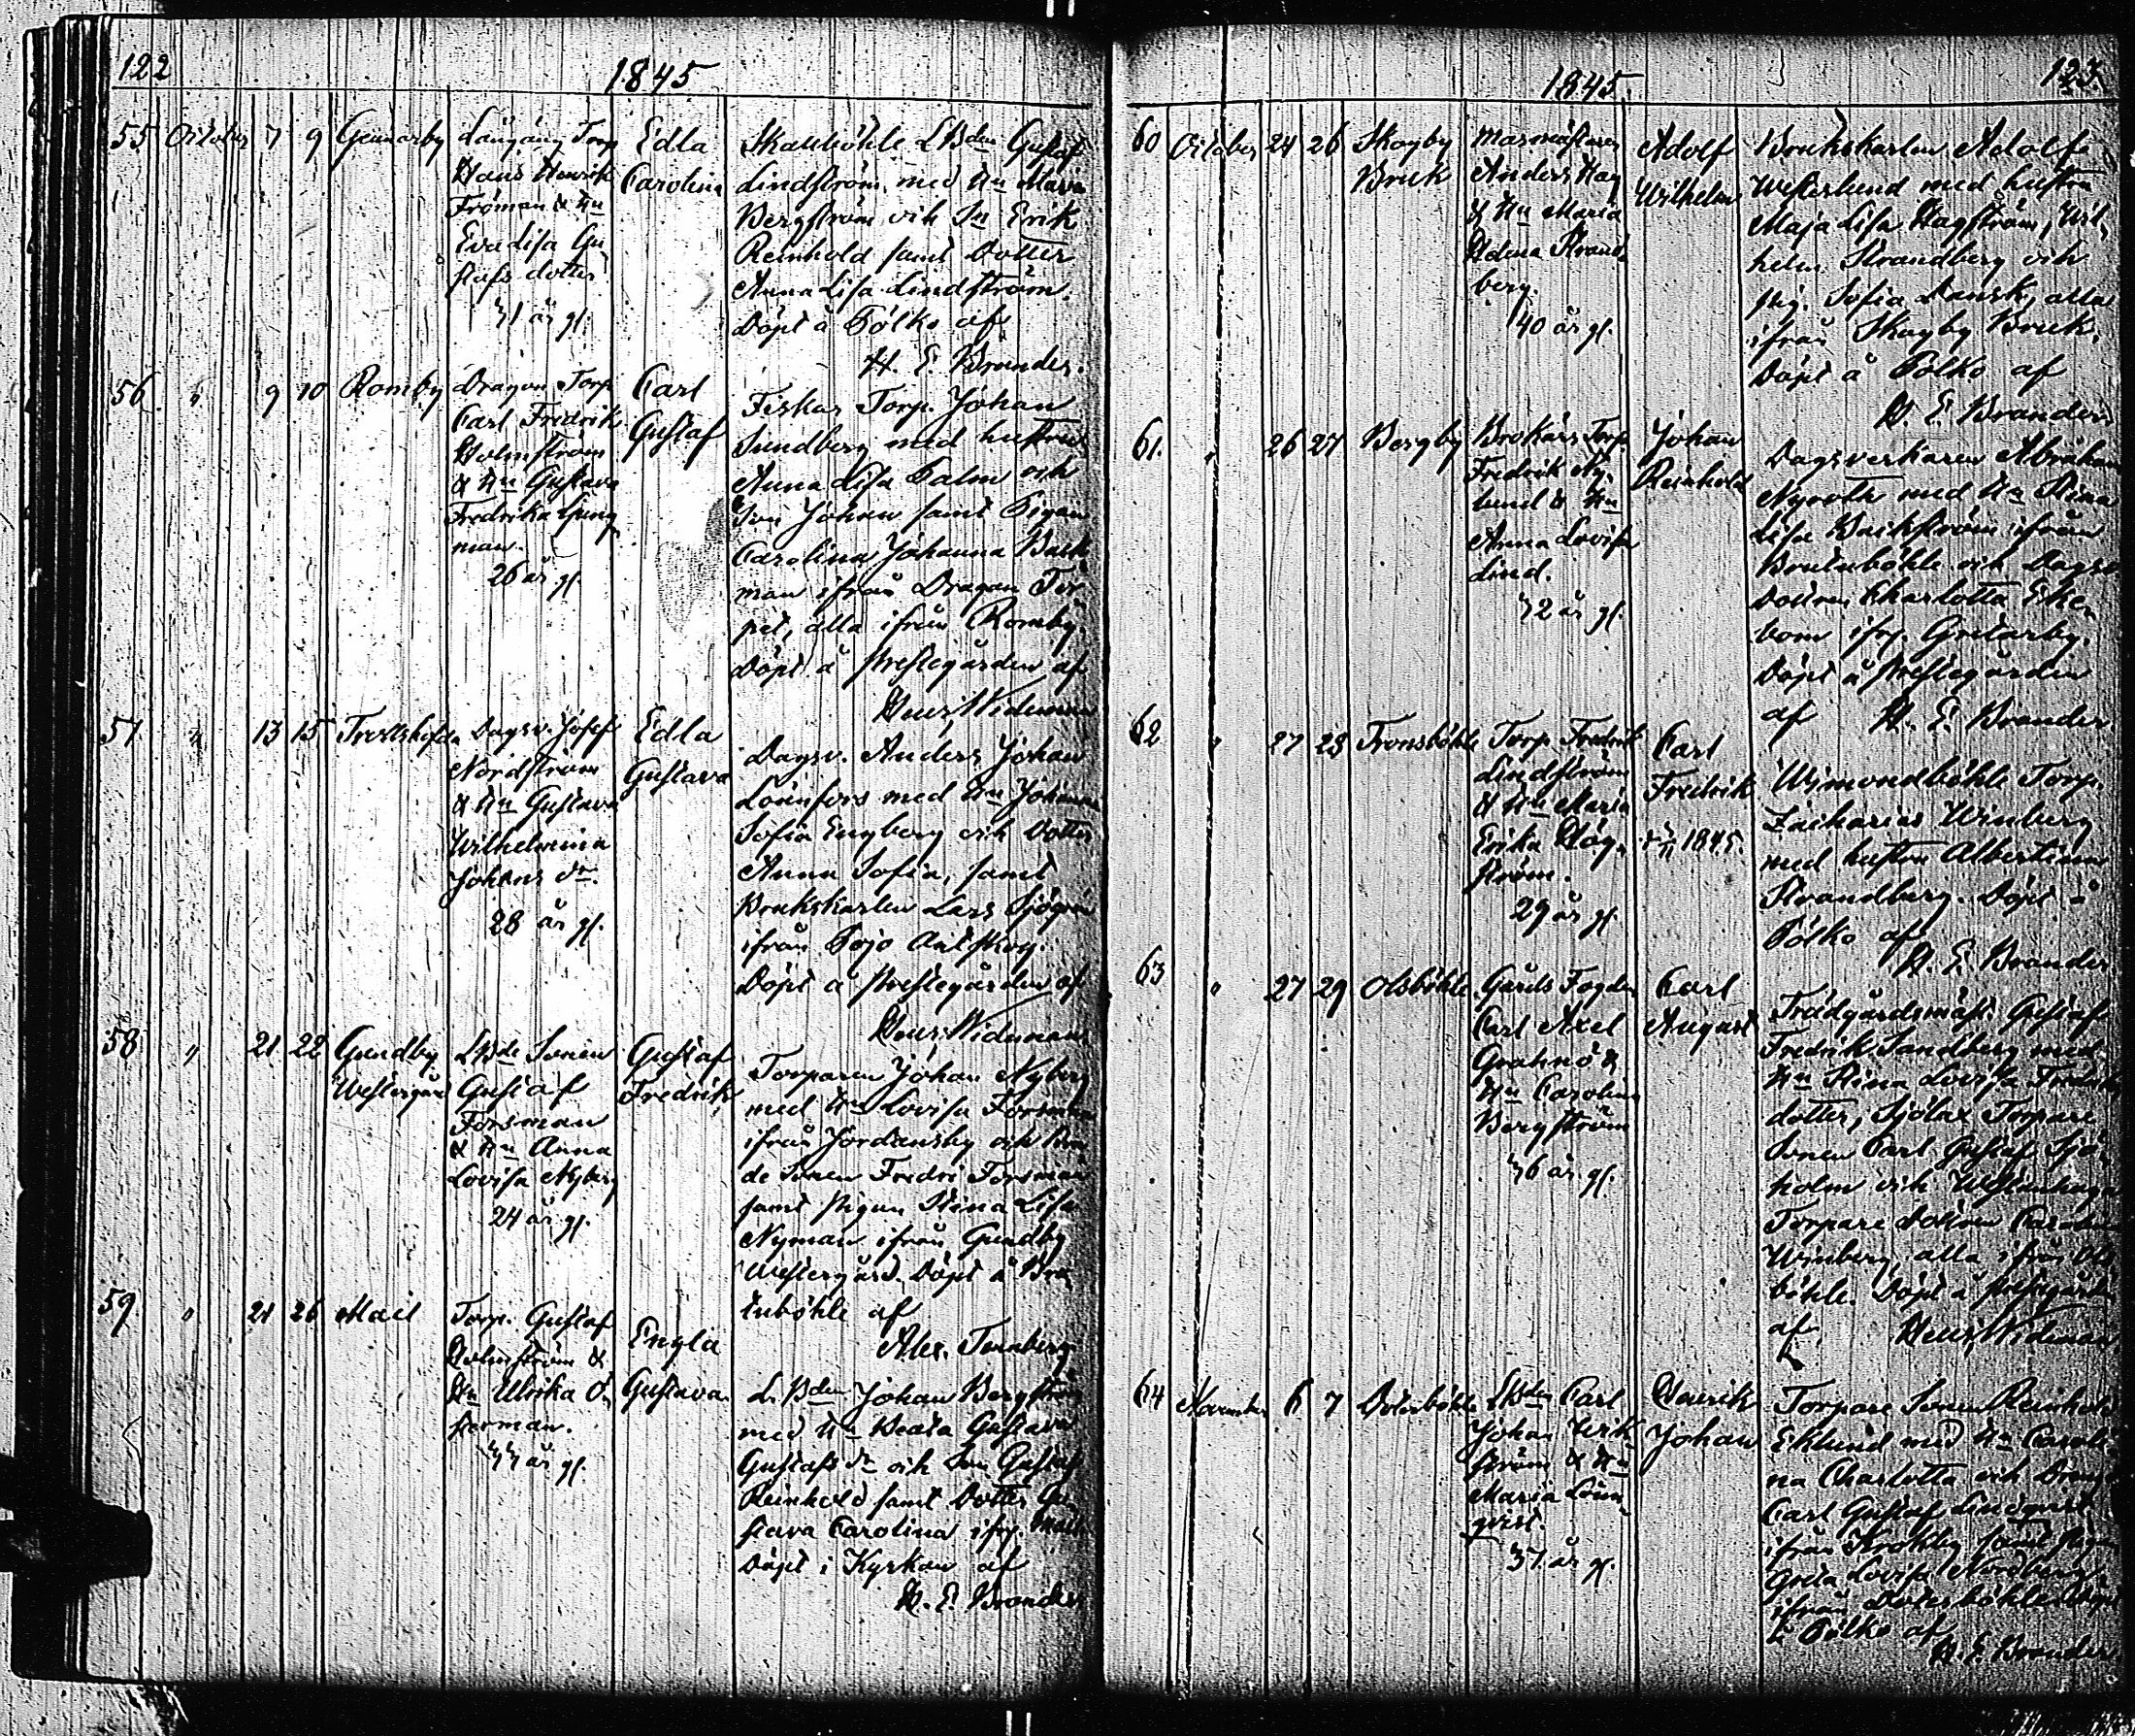 122
1845
55 October 7 9 Gennarby
Långäng Torp
Hans Henrik
Fröman & Hu
Eva Lisa Gu
stafs dotter
31 år gl.
Edla
Carolina
Skallböhle LBdn Gustaf
Lindström med Hu Maria
Bergström och Sn Erik
Reinhold samt Dotter
Anna Lisa Lindström.
Döpt å Pölko af
H. E. Brander.
56 " 9 10 Romby
Dragon Torp.
Carl Fredrik
Holmström
& Hu Gustava
Fredrika Ljung
man.
26 år gl.
Carl
Gustaf
Fiskar Torp. Johan
Sundberg med hustru
Anna Lisa Palm och
Son Johan samt Pigan
Carolina Johanna Back
man ifrån Dragon Tor
pet, alla ifrån Romby.
Döpt å Prestegården af
Henr. Wideman
57 " 13 15
Dagsv. Josef
Nordström
& Hu Gustava
Wilhelmina
Johans dr.
28 år gl.
Edla
Gustava
Dagsv. Anders Johan
Lönnfors med Hu Johanna
Sofia Engberg och Dotter
Anna Sofia, samt
Brukskarlen Lars Sjögren
ifrån Pojo Antskog.
Döpt å Prestegården af
Henr. Wideman
58 " 21 22 Gundby
Westergård
LBde Sonen
Gustaf
Forsman
& Hu Anna
Lovisa Nyberg
24 år gl.
Gustaf
Fredrik
Torparen Johan Nyberg
med Hu Lovisa Forsman
ifrån Jordansby och Bon
de Sonen Fredri Forsman
samt Pigan Stina Lisa
Nyman ifrån Gundby
Westergård. Döpt å Bru
tuböhle af
Alex. Tennberg
59 " 21 26 Mail
Torp. Gustaf
Holmström &
Hu Ulrika Ö
sterman.
33 år gl.
Engla
Gustava
L. Bdn Johan Bergström
med Hu Beata Gustava
Gustafs dr och Son Gustaf
Reinhold samt Dotter Gu
stava Carolina ifr. Mail.
Döpt i Kyrkan af
H. E. Brander
1845.
123.
60 October 24 26 Skogby
Bruk
Masmästaren
Anders Hag
& Hu Maria
Helena Strand
berg.
40 år gl.
Adolf
Wilhelm
Brukskarlen Adolf
Westerlund med hustru
Maja Lisa Hagström, Wil
helm Strandberg och
pig. Sofia Dansk, alla
ifrån Skogby Bruk.
Döpt å Pölko af
H. E. Brander
61. " 26 27 Bergby
Brokärs Torp.
Fredrik Ny
lund & Hu
Anna Lovisa
Lind.
32 år gl.
Johan
Reinhold
Dagsverkaren Abraham
Nyroth med Hu Stina
Lisa Backström ifrån
Brutuböhle och Dagsv.
Dottren Charlotta Eke
bom ifr. Gretarby.
Döpt å Prestegården
af H. E. Brander
62 " 27 28 Tronsböhle
Torp. Fredrik
Lindström
& Hu Maria
Erika Hög
ström.
29 år gl.
Carl
Fredrik
1845.
Wimondböhle Torp.
Zacharias Winberg
med hustru Albertina
Strandberg. Döpt å
Pölko af
H. E. Brander
63 " 27 29 Olsböhle
Gårds Fogden
Carl Axel
Grahnö &
Hu Carolina
Bergström
36 år gl.
Carl
August
Trädgårdsmäst. Gustaf
Fredrik Sandberg med
Hu Stina Lovisa Fredriks
dotter, Sjölax Torpare
Sonen Carl Gustaf Sjö
holm och
Torpare Dottren Carolina
Winberg, alla ifrån Ols
böhle. Döpt å Prestegården
af Henr. Wideman
64 November 6 7
LBdn Carl
Johan Wik
ström & Hu
Maria Lönn
qvist.
37 år gl.
Henrik
Johan
Torpare Sonen Reinhold
Eklund med Hu Caroli
na Charlotta och Dreng
Carl Gustaf Lindqvist
ifrån Krokby samt pigan
Greta Lovisa Nordberg
ifrån Dotesböhle. Döpt
å Pölko af
H. E. Brander